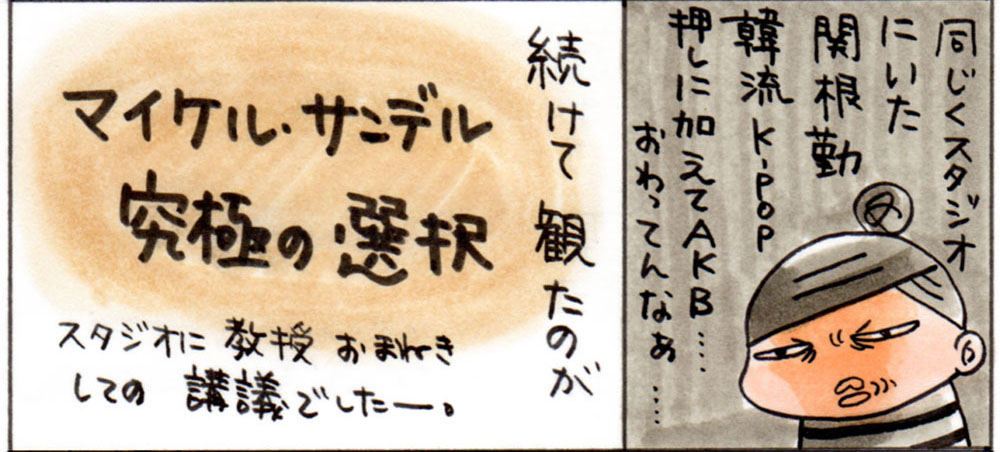 同じくスタジオ
にいた
関根勤
韓流 K-POP
押しに加えてAKB…
おわってんなぁ……
続けて観たのが
マイケル・サンデル
究極の選択
スタジオに教授おまねき
しての講義でしたー。